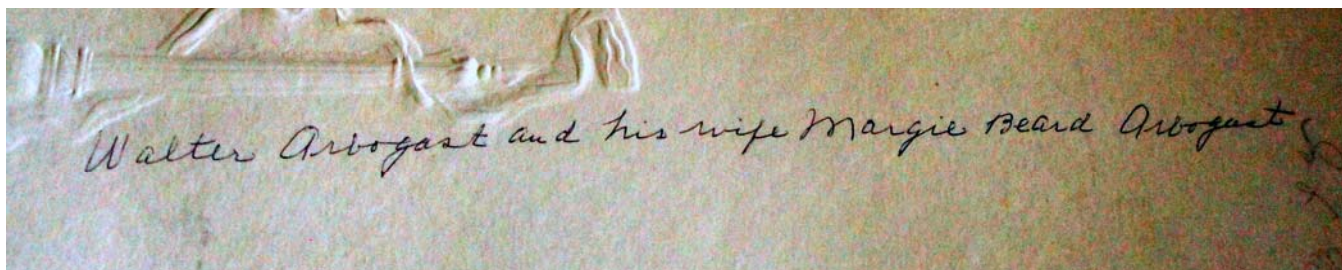 Walter Arbogast and his wife Margie Beard Arbogast